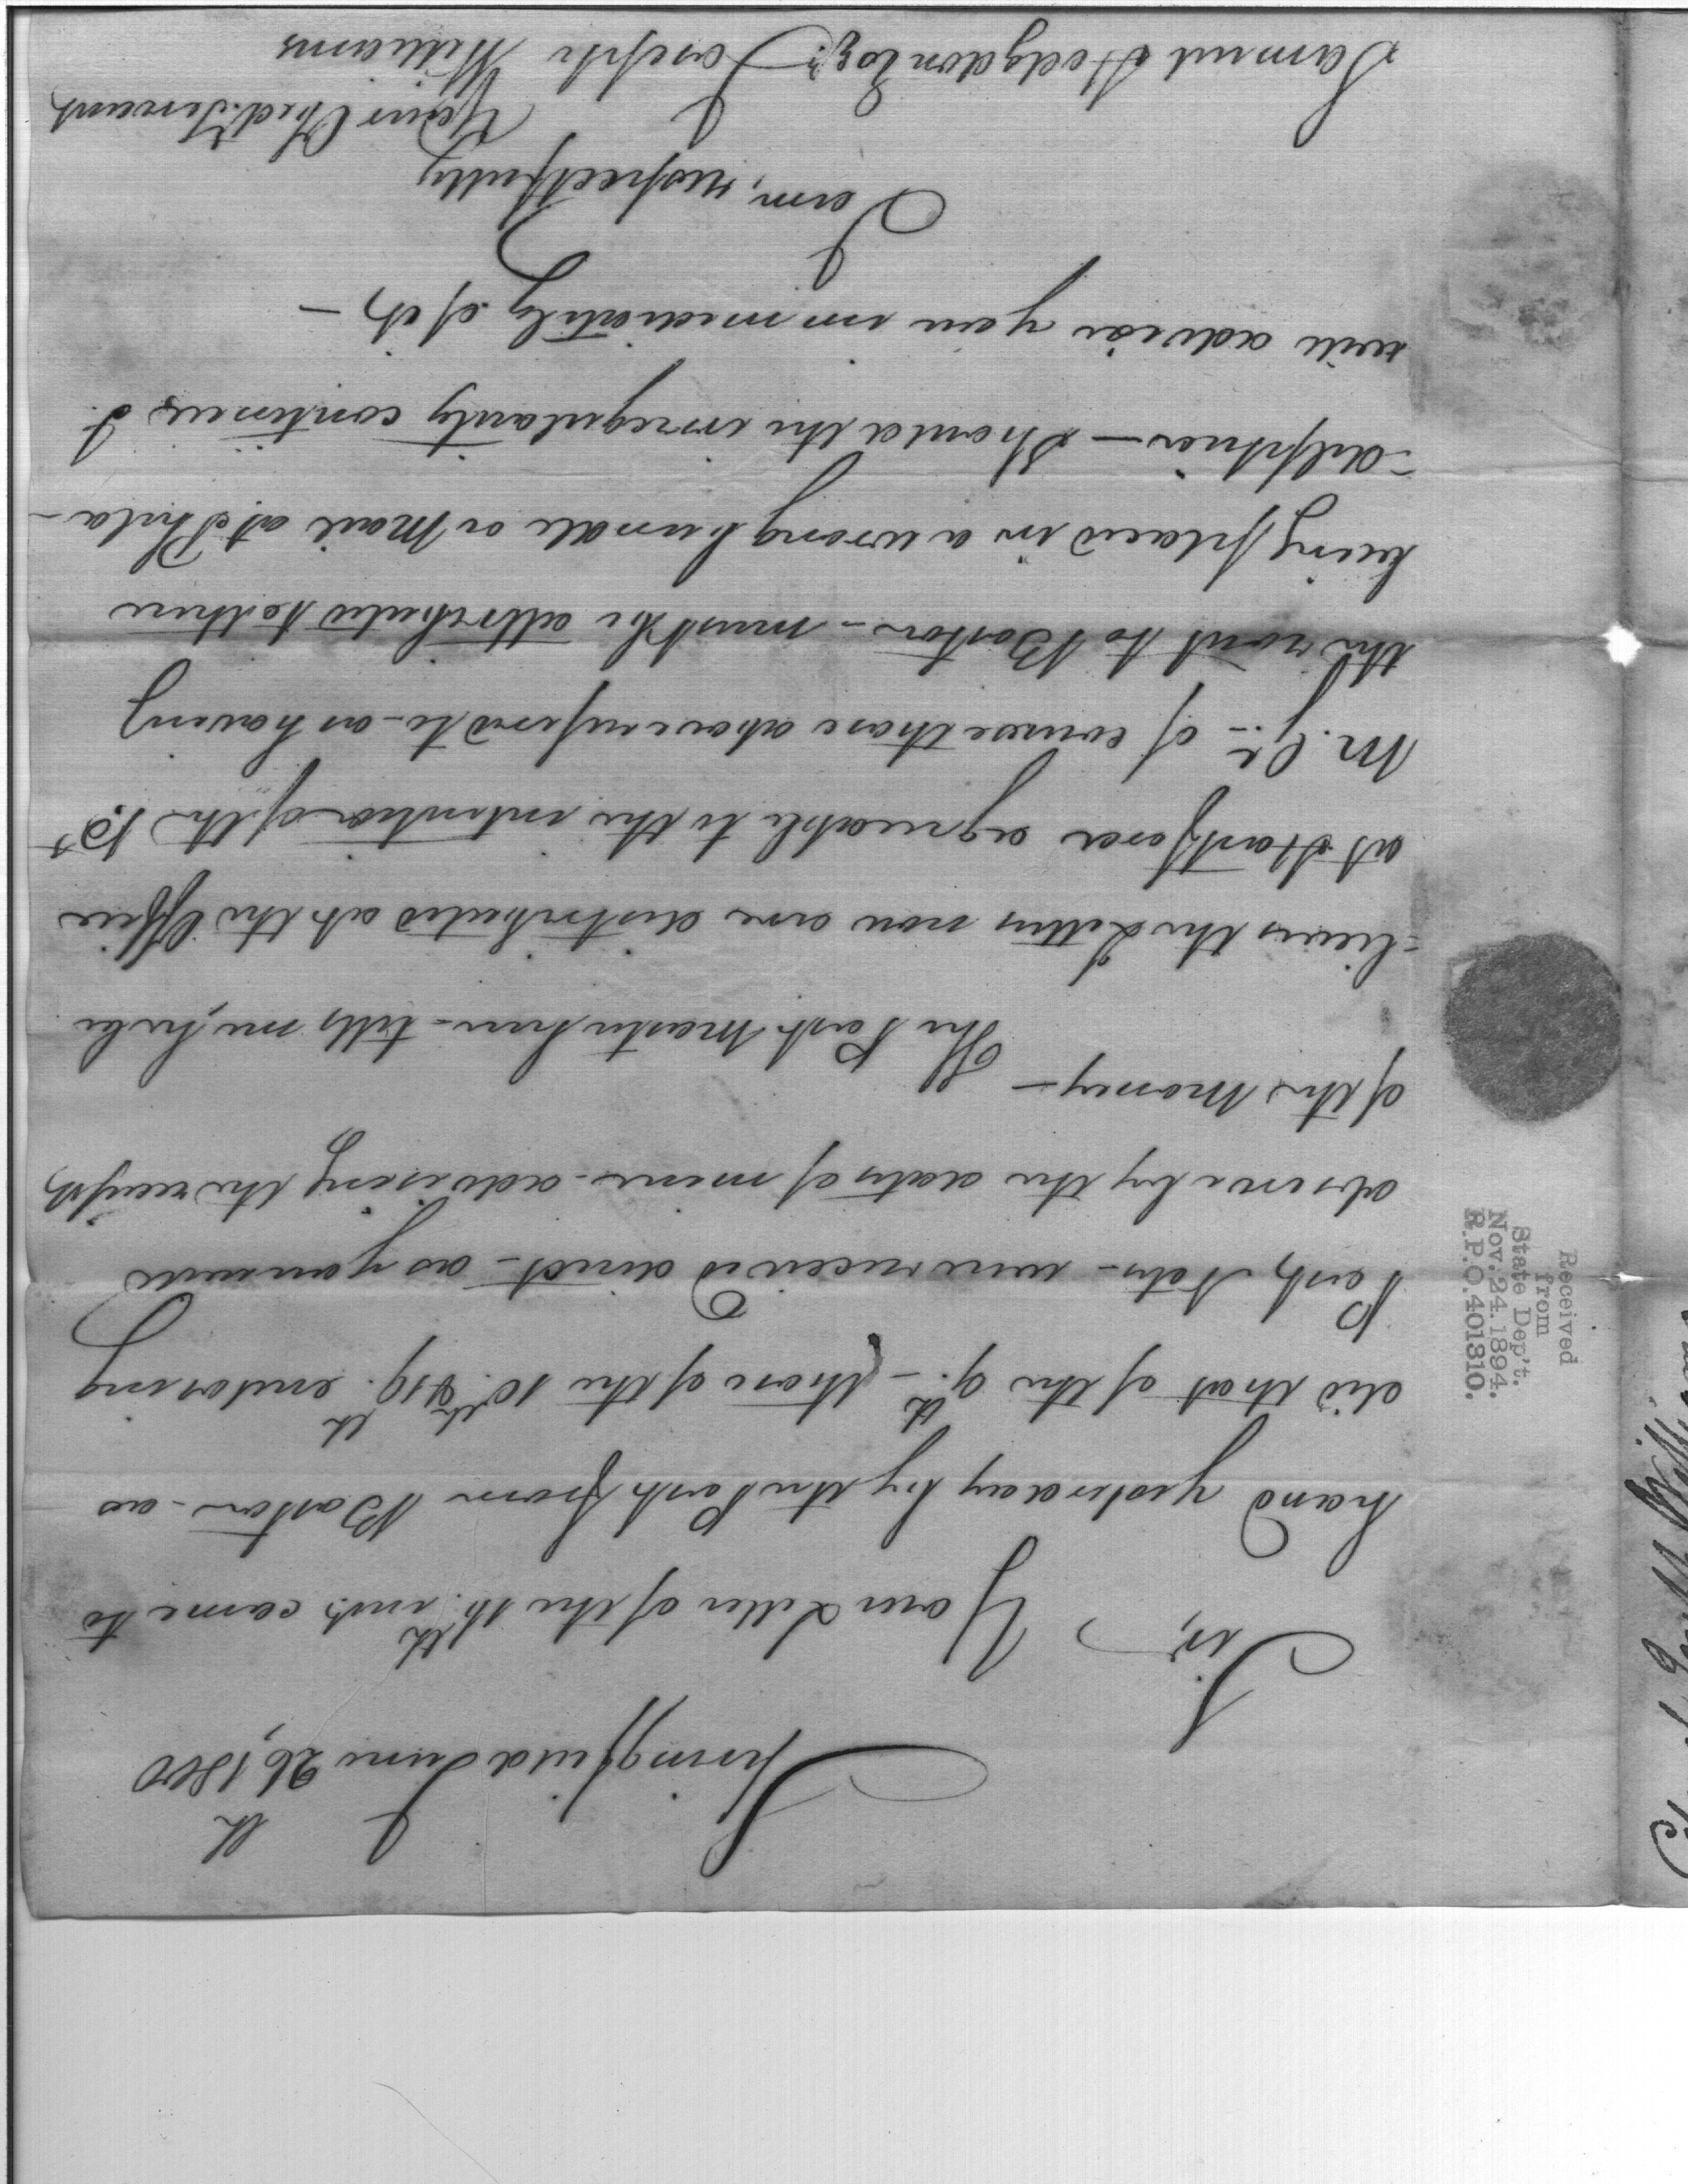 Springfield June 26th, 1800
Sir,
Your Letter of the 16th inst. came to
hand yesterday by the Post from Boston - as
did that of the 9th. - those of the 10th & 19th. enclosing
Post Notes - were received direct - as you will
observe by the dates of mine - advising the receipt
of the Money -
The Post Master here - tells me, he be
-lieves the Letters now are distributed at the Office
at Hartford agreeable to the intention of the Pst
M. Gl. - of course those above refered to - as having
the rout to Boston - must be attributed to their
being placed in a wrong bundle or Mail at Phila-
-delphia - Should the irregularity continue I
will advise you immediately of it -
I am, respectfully
Your Obed. Servant
Samuel Hodgdon Esqr. Joseph Williams
Received
from
State Dep't.
Nov. 24. 1894.
R.P.O. 401310.